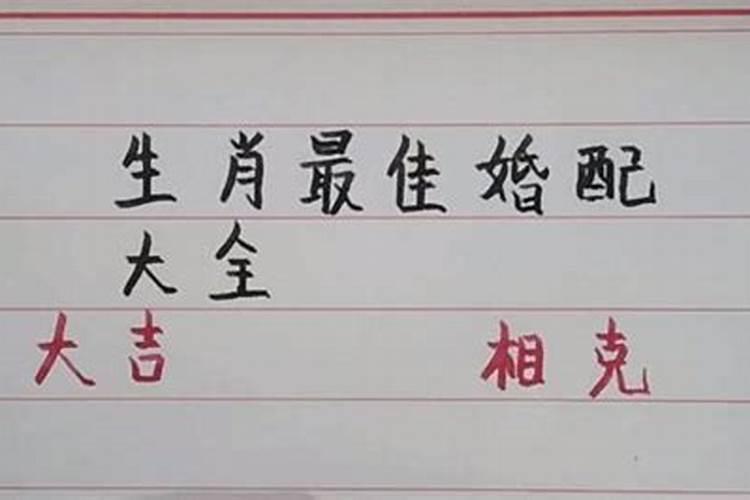 生肖最佳婚配
大全
大吉 相克